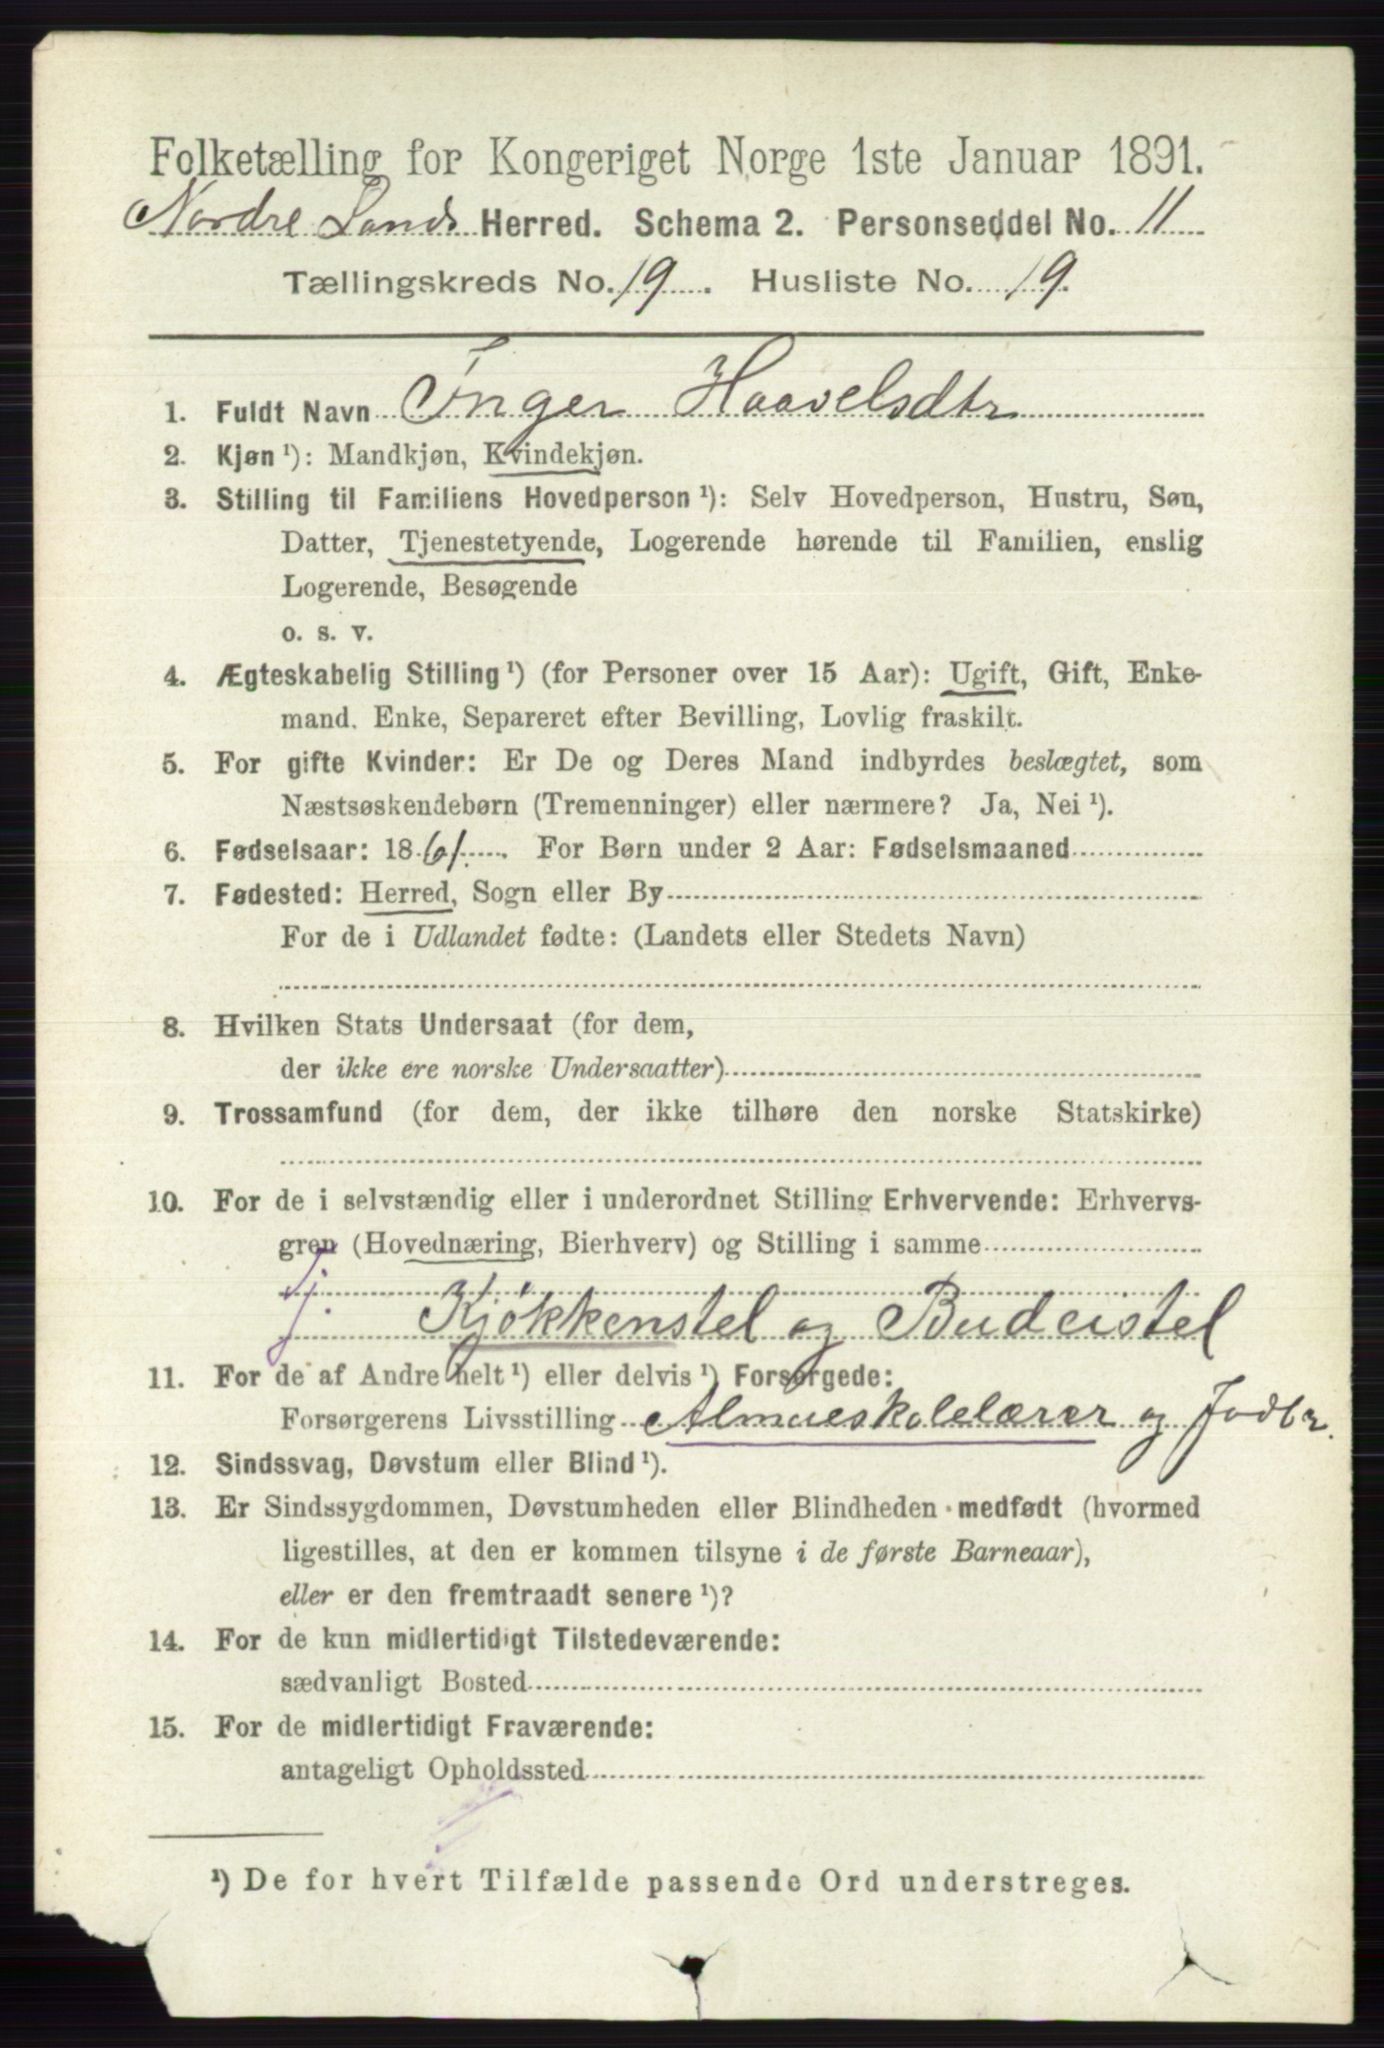 Folketælling for Kongeriget Norge 1ste Januar 1891.
Nordre Lands Herred. Schema 2. Personseddel No. 11
Tællingskreds No. 19. Husliste No. 19.
1. Fuldt Navn Inger Haavelsdtr
2. Kjøn ¹): Mandkjøn, Kvindekjøn.
3. Stilling til Familiens Hovedperson ¹): Selv Hovedperson, Hustru, Søn,
Datter, Tjenestetyende, Logerende hørende til Familien, enslig
Logerende, Besøgende
o. s. v.
4. Ægteskabelig Stilling ¹) (for Personer over 15 Aar): Ugift, Gift, Enke-
mand. Enke, Separeret efter Bevilling, Lovlig fraskilt.
5. For gifte Kvinder: Er De og Deres Mand indbyrdes beslægtet, som
Næstsøskendebørn (Tremenninger) eller nærmere? Ja, Nei ¹).
6. Fødselsaar: 1861. For Børn under 2 Aar: Fødselsmaaned
7. Fødested: Herred, Sogn eller By
For de i Udlandet fødte: (Landets eller Stedets Navn)
8. Hvilken Stats Undersaat (for dem,
der ikke ere norske Undersaatter)
9. Trossamfund (for dem, der ikke tilhøre den norske Statskirke)
10. For de i selvstændig eller i underordnet Stilling Erhvervende: Erhvervs-
gren (Hovednæring, Bierhverv) og Stilling i samme
j. Kjøkkenstel og Budeistel
11. For de af Andre helt ¹) eller delvis ¹) Forsørgede:
Forsørgerens Livsstilling Almueskolelærer og Jodbr.
12. Sindssvag, Døvstum eller Blind ¹).
13. Er Sindssygdommen, Døvstumheden eller Blindheden medfødt (hvormed
ligestilles, at den er kommen tilsyne i de første Barneaar),
eller er den fremtraadt senere ¹)?
14. For de kun midlertidigt Tilstedeværende:
sædvanligt Bosted
15. For de midlertidigt Fraværende:
antageligt Opholdssted
¹) De for hvert Tilfælde passende Ord understreges.